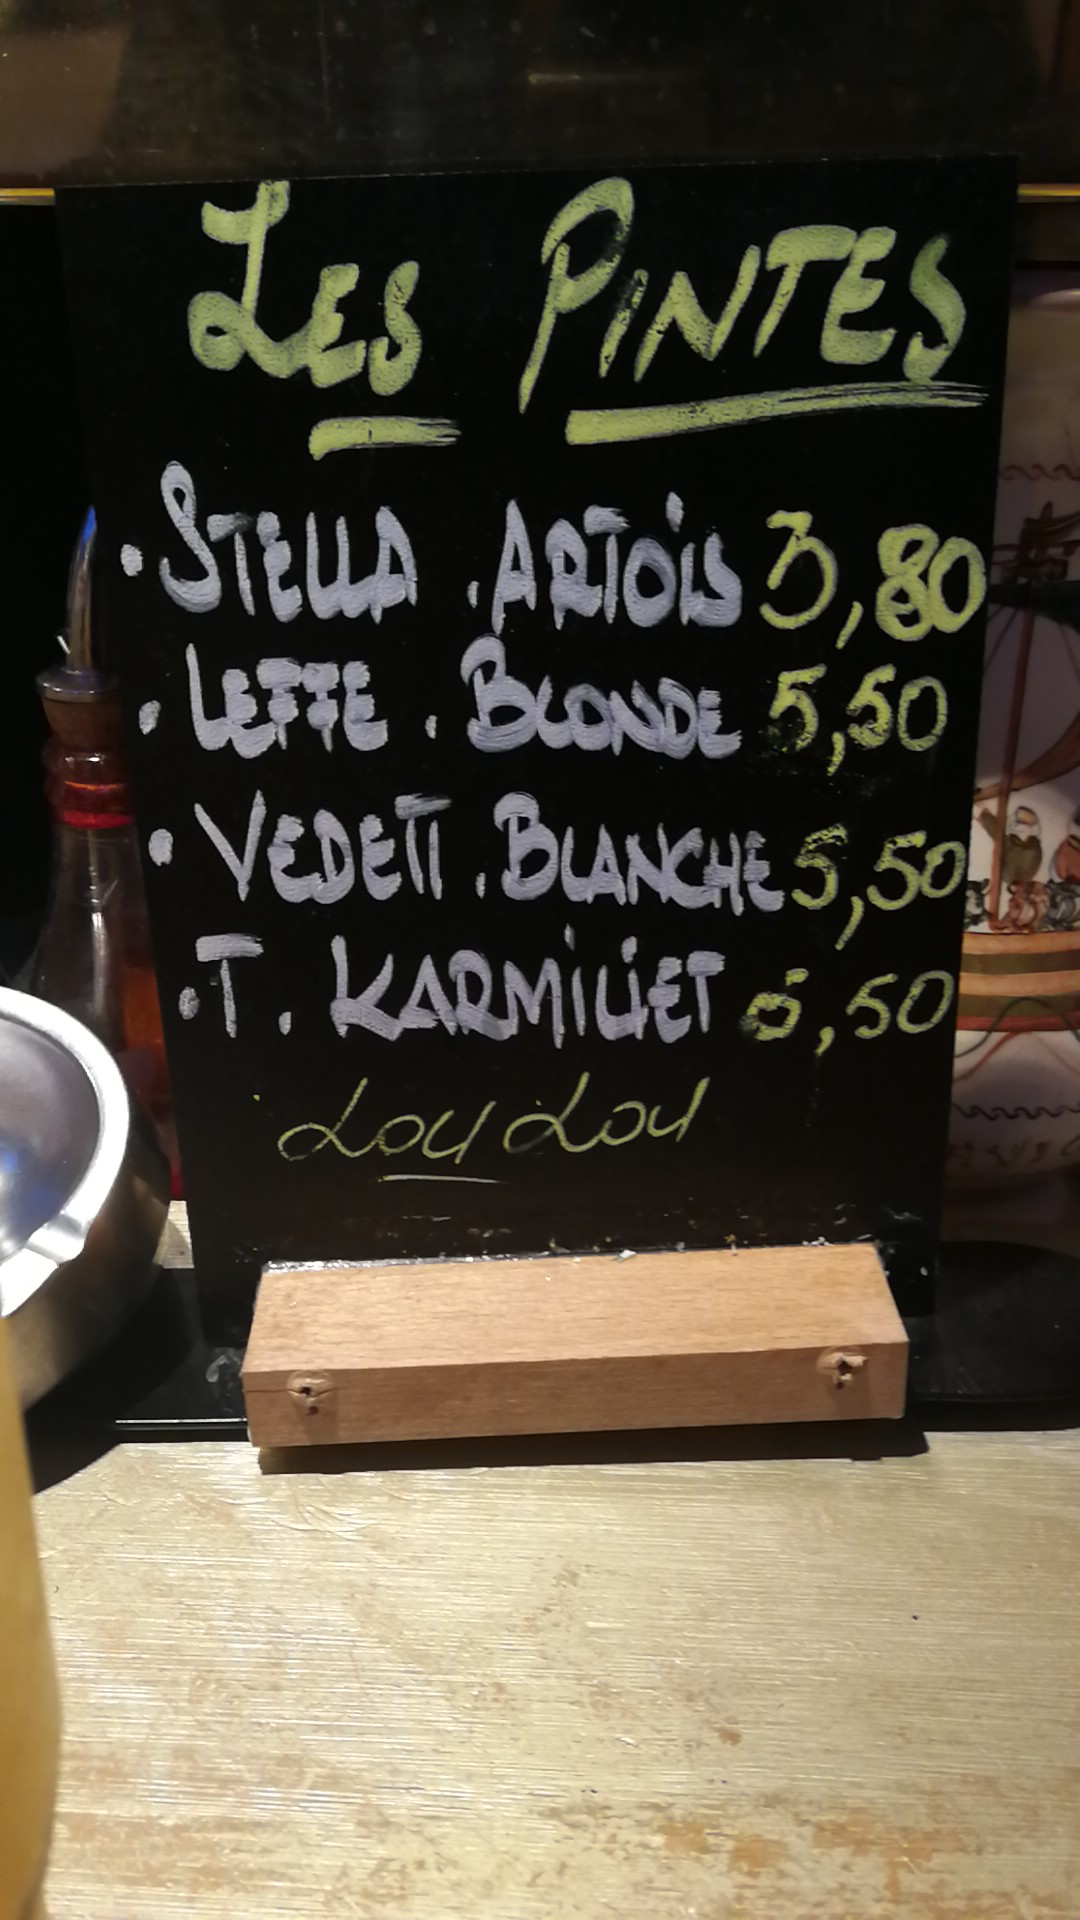 LES PINTES
. STELLA . ARTOIS 3,80
. LEFFE . BLONDE 5,50
. VEDETT . BLANCHE 5,50
. T . KARMILIET 5,50
Lou Lou